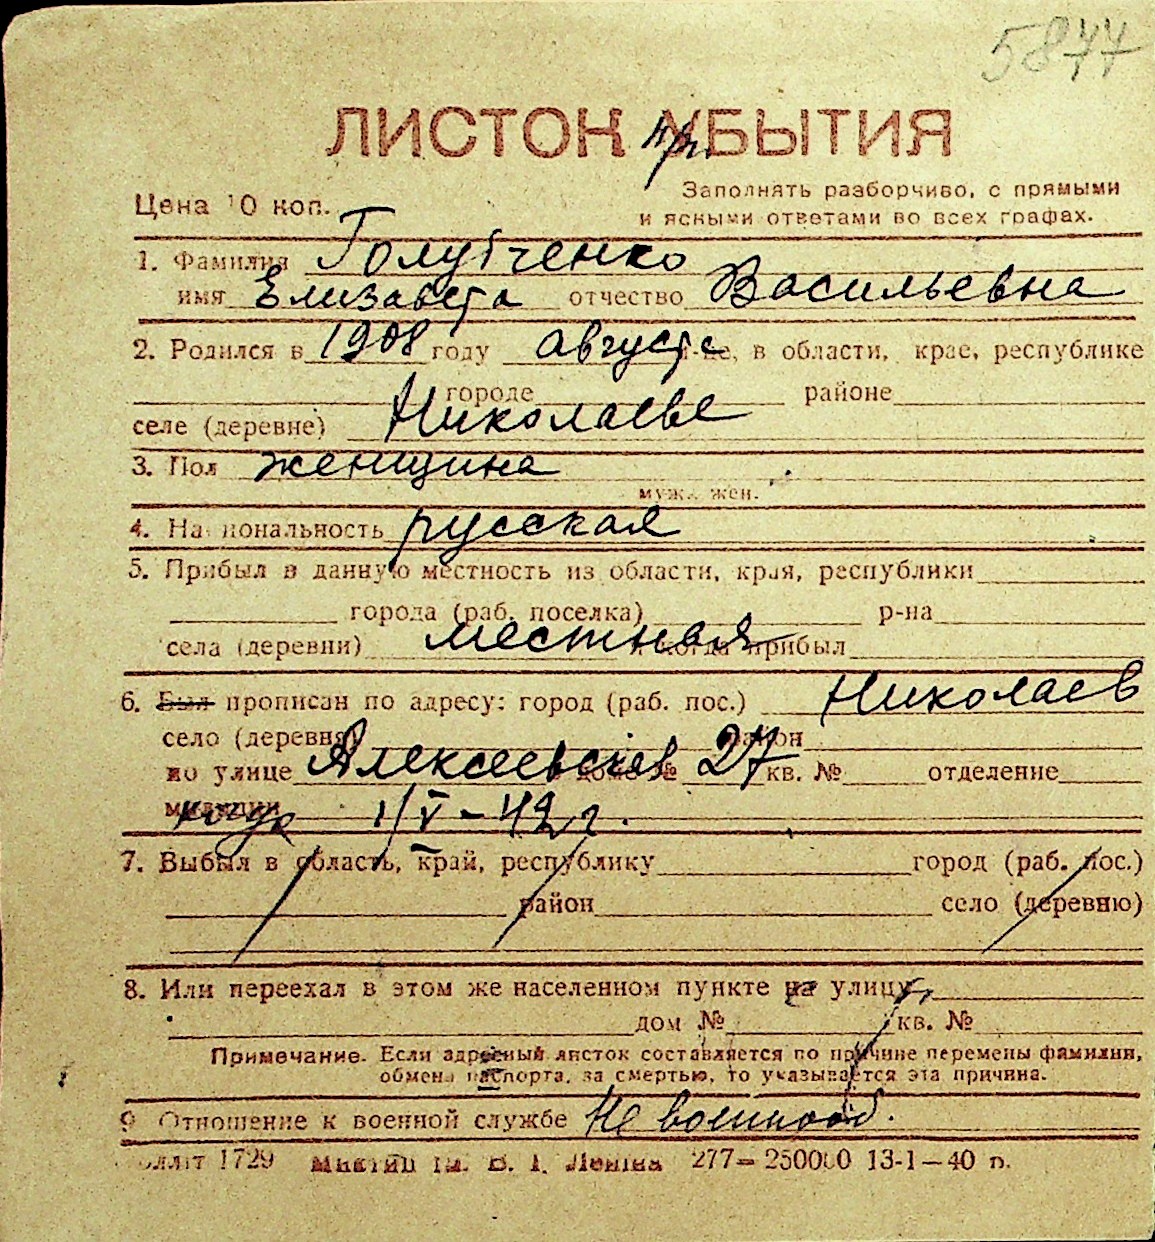 5877
ЛИСТОК УБЫТИЯ
пр.
Цена 10 коп.
Заполнять разборчиво, с прямыми
и ясными ответами во всех графах.
1. Фамилия Голубченко
имя Елизавета отчество Васильевна
2. Родился в 1908 году августе м-це, в области, крае, республике
городе районе
селе (деревне) Николаеве
3. Пол женщина
муж. жен.
4. Национальность русская
5. Прибыл в данную местность из области, края, республики
города (раб. поселка) р-на
села (деревни) местная и когда прибыл
6. Был прописан по адресу: город (раб. пос.) Николаев
село (деревня) район
по улице Алексеевской дом № 27 кв. № отделение
милиции 1/V - 42 г.
7. Выбыл в область, край, республику город (раб. пос.)
район село (деревню)
8. Или переехал в этом же населенном пункте на улицу
дом № кв. №
Примечание. Если адресный листок составляется по причине перемены фамилии,
обмена паспорта, за смертью, то указывается эта причина.
9 Отношение к военной службе Не военнооб.
1729 277—250000 13-1—40 п.